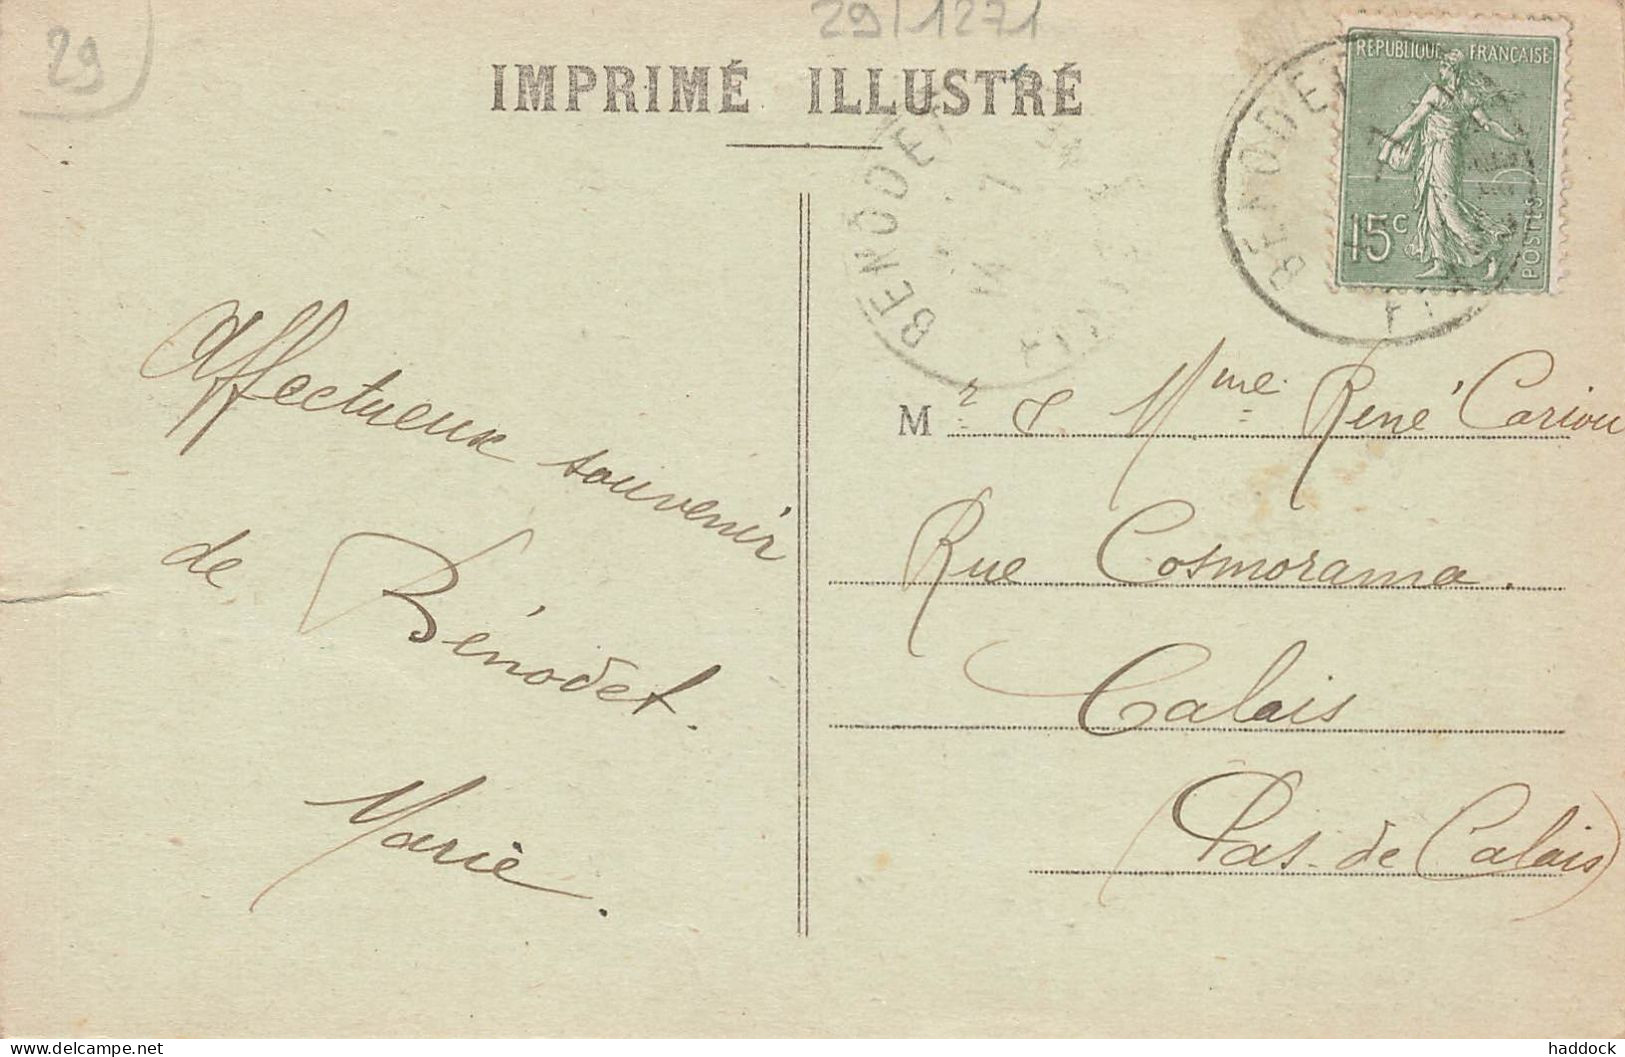 29
29/1271
IMPRIMÉ ILLUSTRÉ
RÉPUBLIQUE FRANÇAISE
15c
POSTES
BENODET
BENODET
Affectueux souvenir
de Bénodet.
Marie.
Mr & Mme René Cariou
Rue Cosmorama.
Calais
(Pas-de Calais)
https://www.delcampe.net
haddock